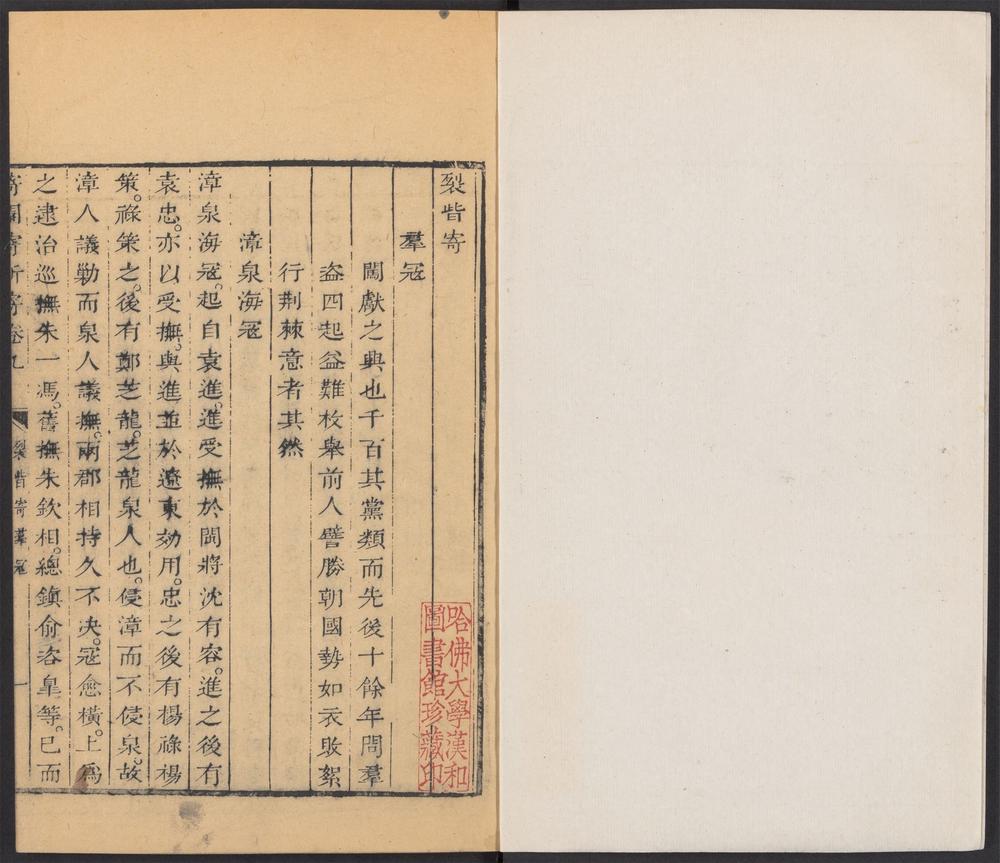 裂眥寄
羣冦
闖獻之興也千百其黨類而先後十餘年間羣
盗四起益難枚舉前人譬勝朝國勢如衣敗絮
行荆棘意者其然
漳泉海冦
漳泉海冦。起自袁進。進受撫於閩將沈有容。進之後有
袁忠。亦以受撫。與進並於遼東効用。忠之後有楊祿楊
策。祿策之。後有鄭芝龍。芝龍泉人也。侵漳而不侵泉。故
漳人議勦而泉人議撫。兩郡相持久不决。冦愈橫。上爲
之逮治巡撫朱一馮。舊撫朱欽相。總鎮俞咨臯等。已而
寄園寄所寄卷九
裂眥寄羣冦
一
哈佛大學漢和
圖書館珍藏印